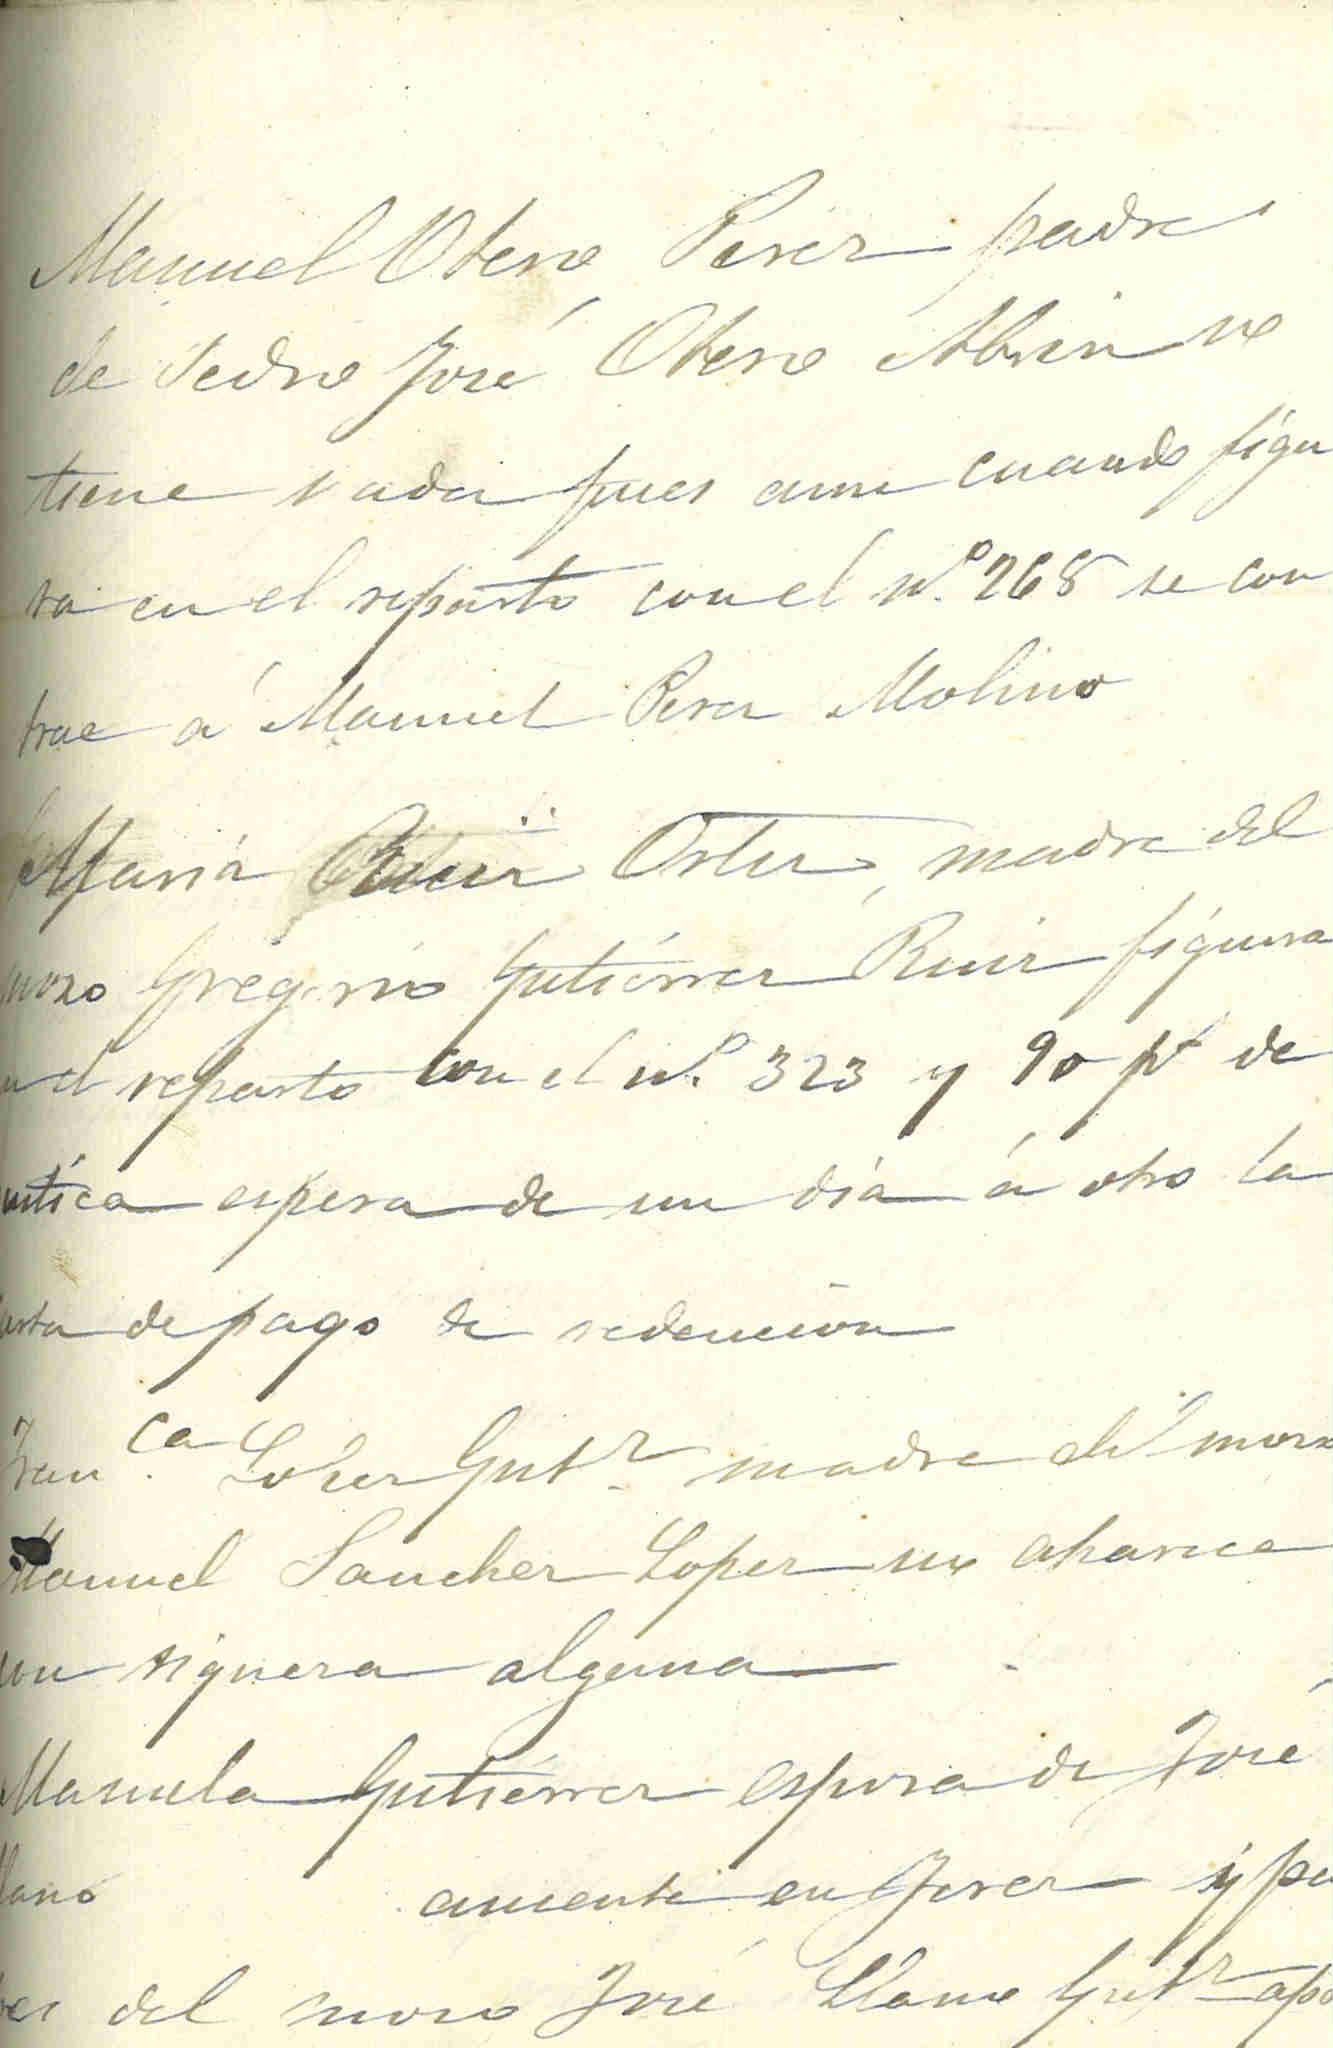 Manuel Otero Perez padre
de Pedro José Otero Abin no
tiene nada pues aun cuando figu
ra en el reparto con el n.º 268 se con
trae á Manuel Perez Molino
Maria Ruiz Ortiz, madre del
mozo Gregorio Gutiérrez Ruiz figura
en el reparto con el n.º 323 y 90 pts de
rustica espera de un dia á otro la
carta de pago de redencion
Fran.ca Lopez Gutz. madre del mozo
Manuel Sanchez Lopez no aparece
con riquera alguna
Manuela Gutiérrez esposa de José
Llano ausente en Jerez y pa
dres del mozo José Llano Gutz apa